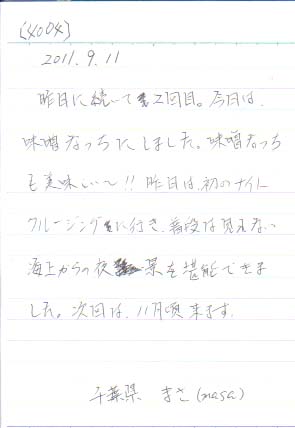 [4004]
2011.9.11
昨日に続いて2回目。今日は、
味噌なっちにしました。味噌なっち
も美味しい〜!!昨日は、初のナイト
クルージングに行き、普段は見えない
海上からの夜景を堪能できま
した。次回は、11月頃来ます。
千葉県 まさ(masa)